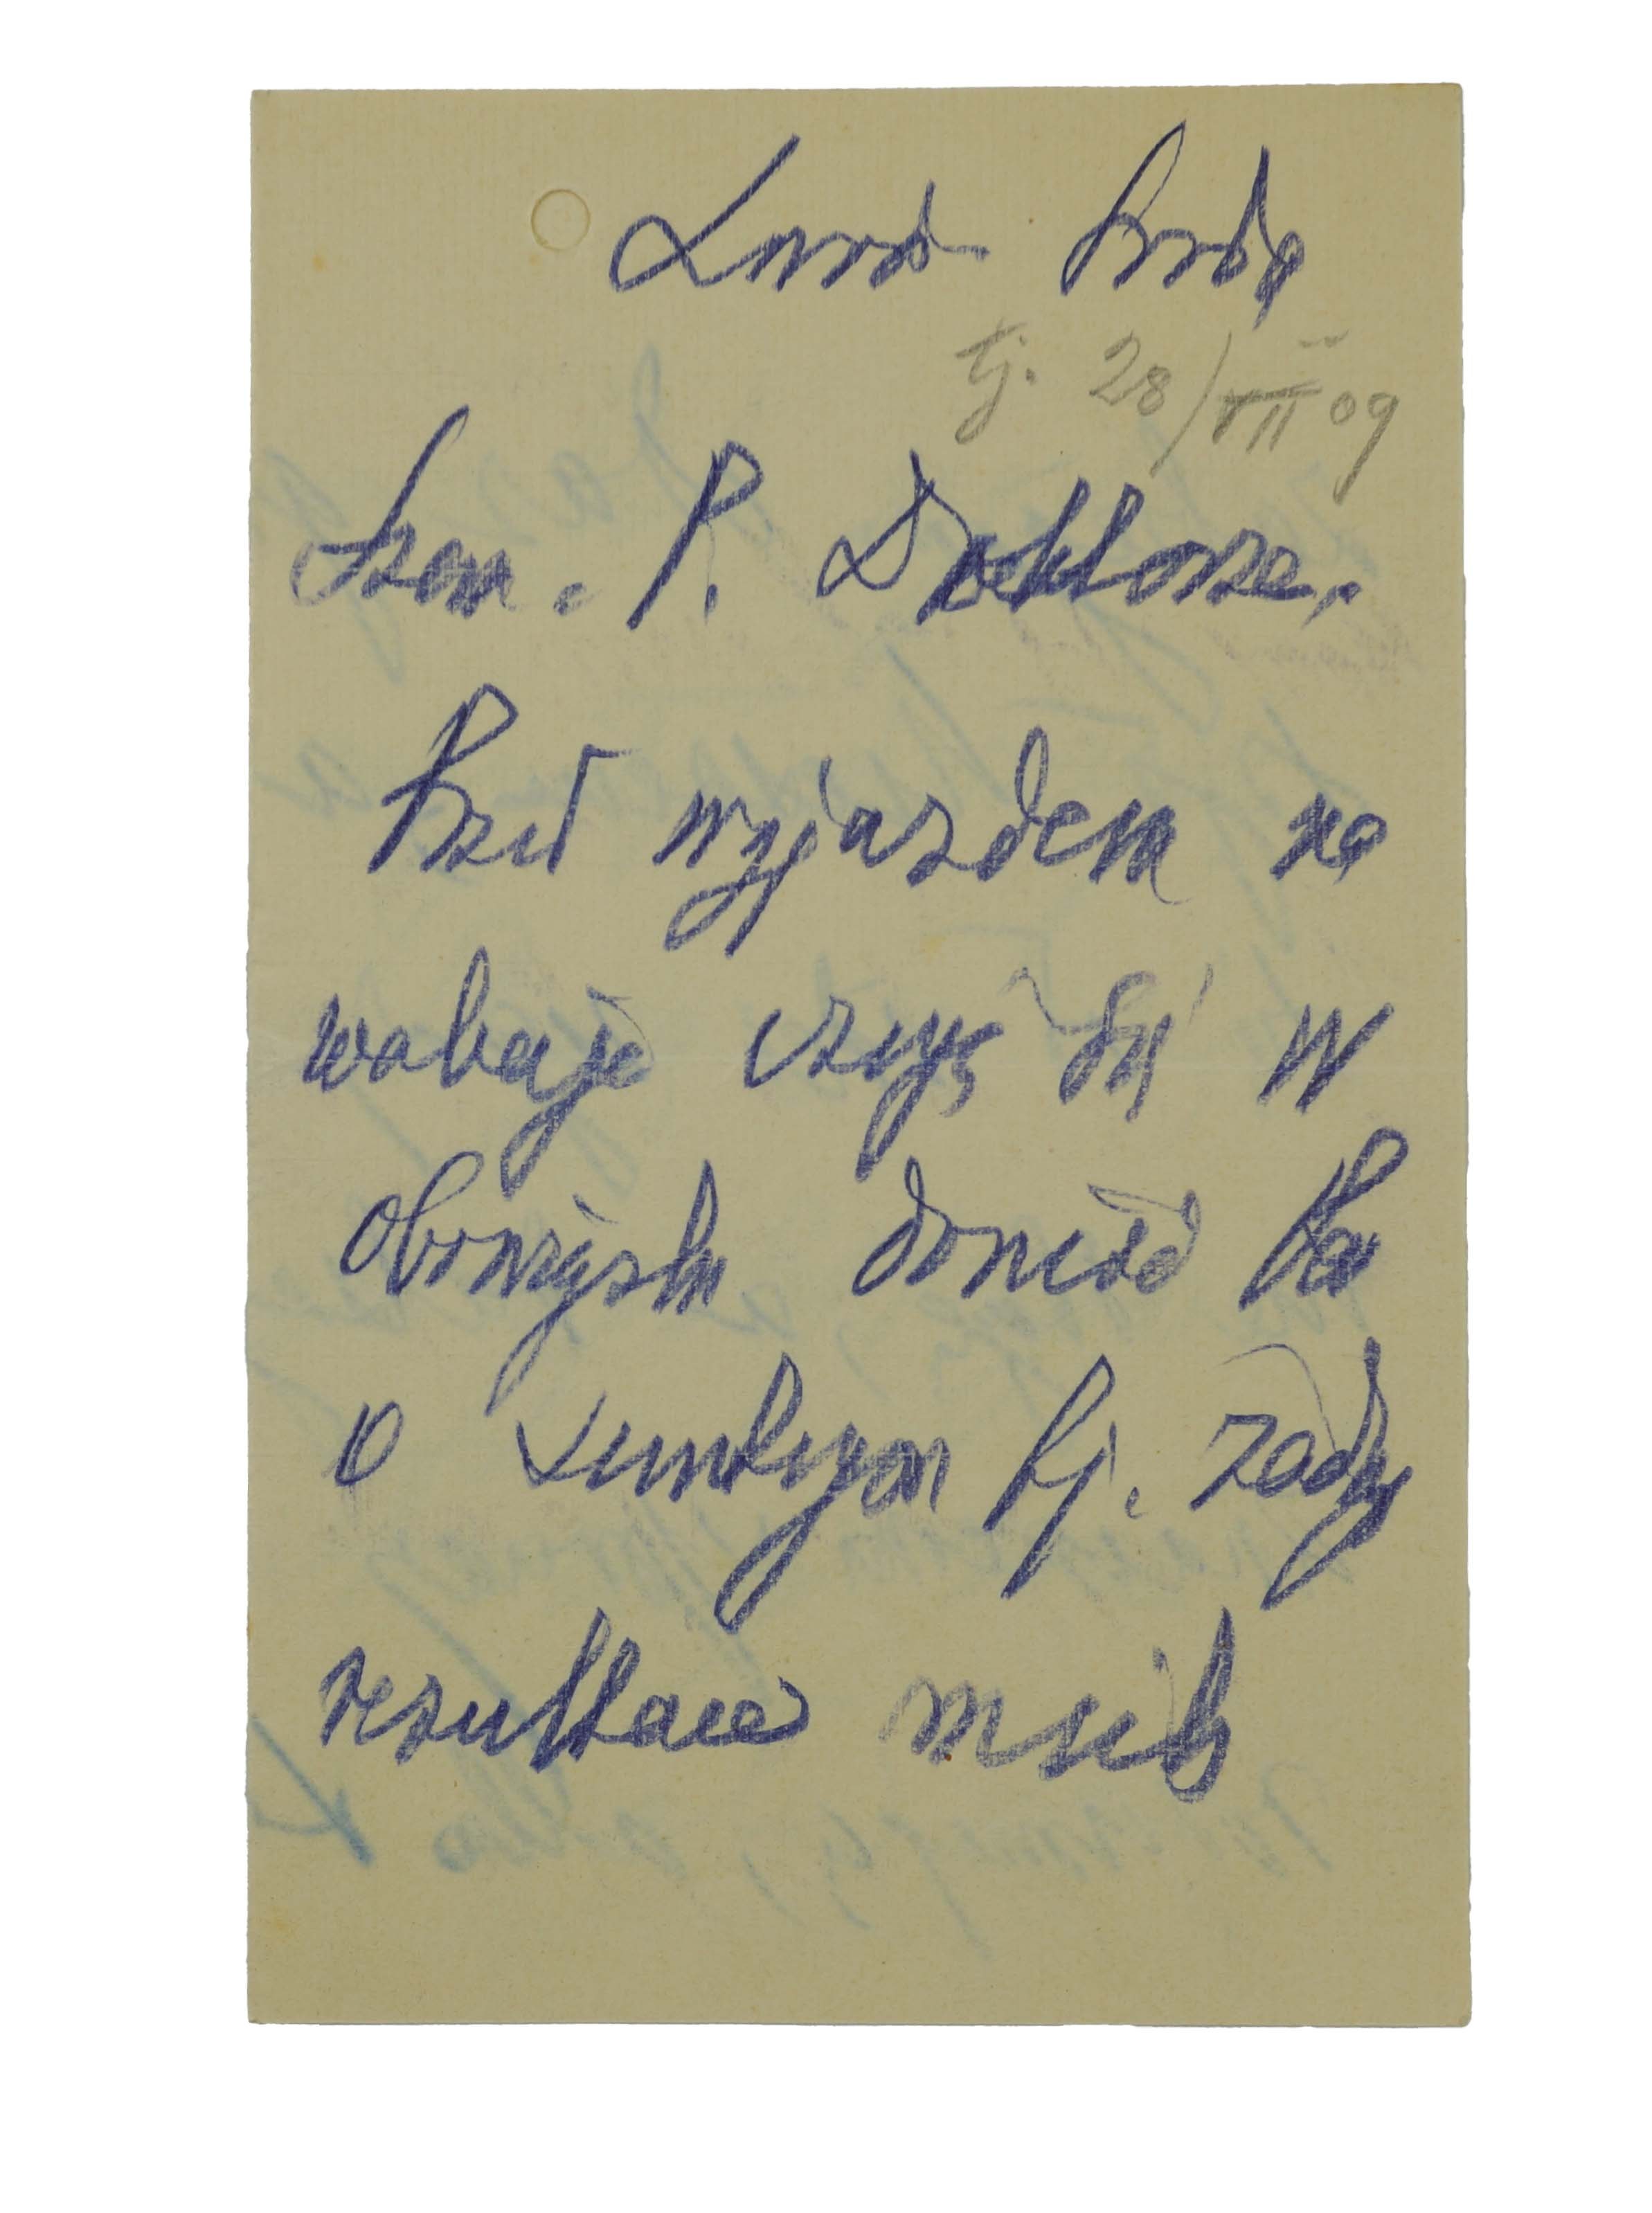 Lwów Środa
tj. 28/VII 09
Szan. P. Doktorze.
Przed wyjazdem na
wakacje czuję się w
obowiązku donieść
o tj.
rezultacie